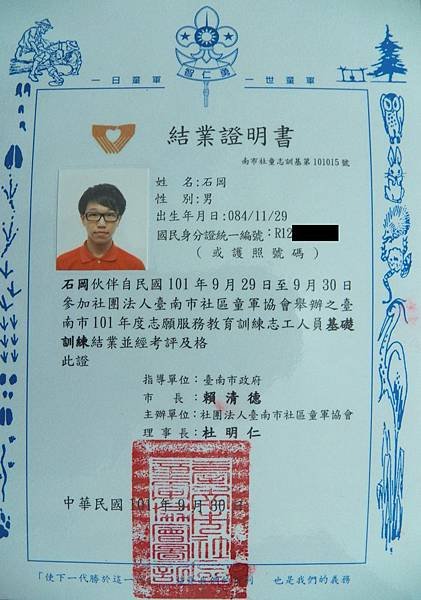 智仁勇
一日童軍 一世童軍
結業證明書
南市社童志訓基第101015號
姓 名:石岡
性 別:男
出生年月日:084/11/29
國民身分證統一編號:R12
(或護照號碼)
石岡伙伴自民國101年9月29日至9月30日
參加社團法人臺南市社區童軍協會舉辦之臺
南市101年度志願服務教育訓練志工人員基礎
訓練結業並經考評及格
此證
指導單位:臺南市政府
市 長:賴清德
主辦單位:社團法人臺南市社區童軍協會
理事長:杜明仁
中華民國101年9月30日
「使下一代勝於這一 也是我們的義務